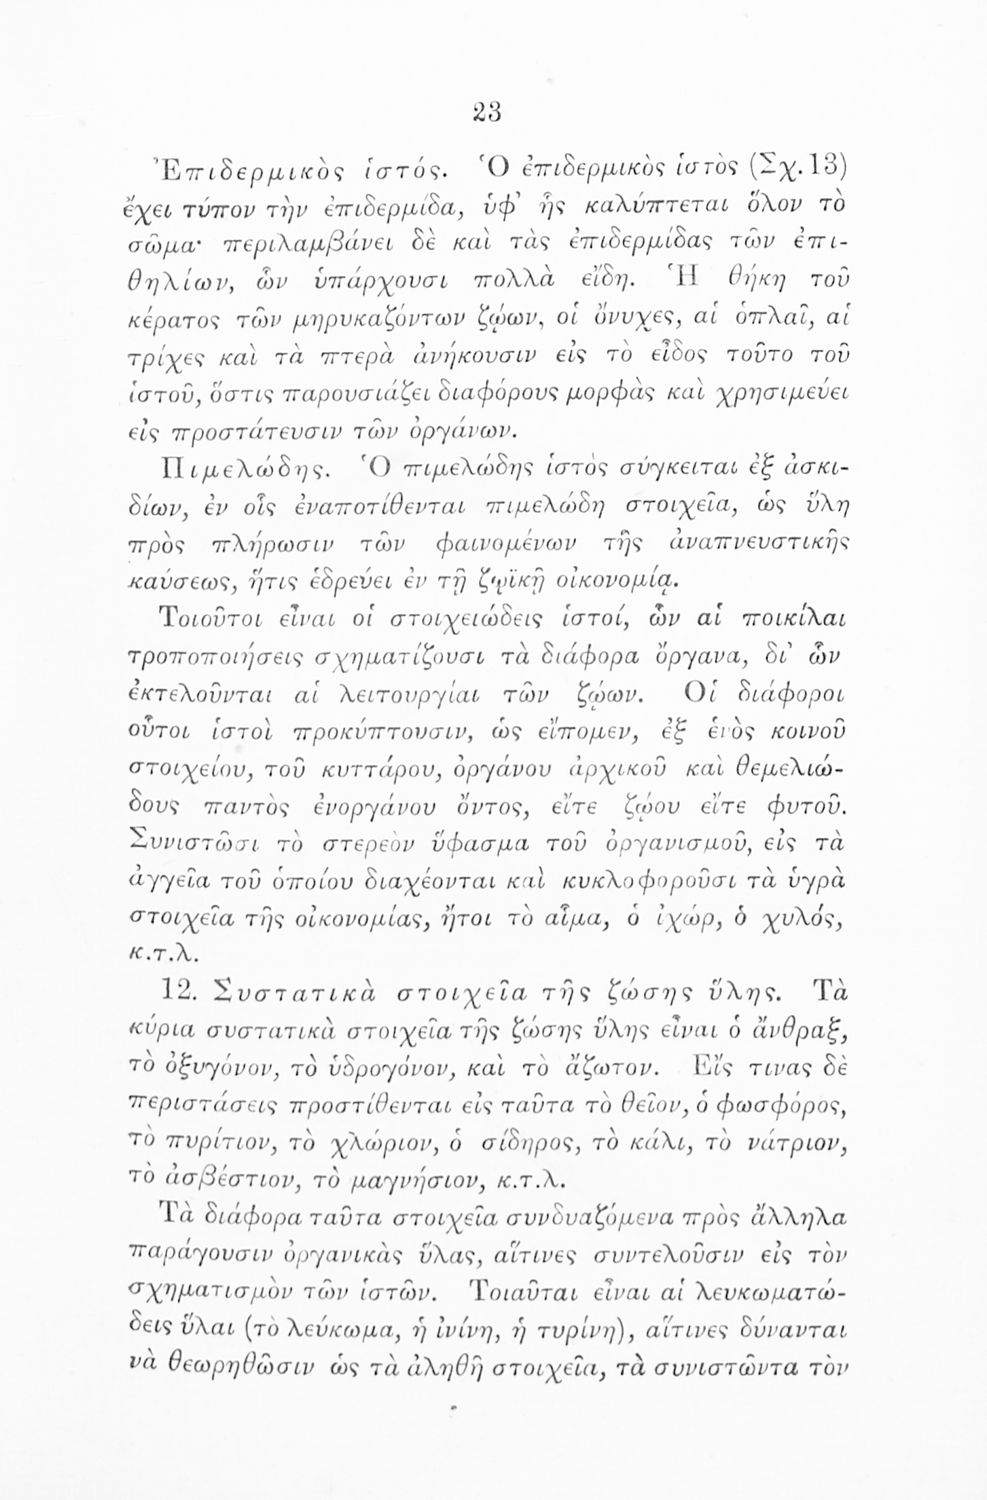 23
Ἐπιδερμικὸς ἱστός. Ὁ ἐπιδερμικὸς ἱστὸς (Σχ. 13)
ἔχει τύπον τὴν ἐπιδερμίδα, ὑφ’ ἧς καλύπτεται ὅλον τὸ
σῶμα· περιλαμβάνει δὲ καὶ τὰς ἐπιδερμίδας τῶν ἐπι-
θηλίων, ὧν ὑπάρχουσι πολλὰ εἴδη. Ἡ θήκη τοῦ
κέρατος τῶν μηρυκαζόντων ζῴων, οἱ ὄνυχες, αἱ ὁπλαῖ, αἱ
τρίχες καὶ τὰ πτερὰ ἀνήκουσιν εἰς τὸ εἶδος τοῦτο τοῦ
ἱστοῦ, ὅστις παρουσιάζει διαφόρους μορφὰς καὶ χρησιμεύει
εἰς προστάτευσιν τῶν ὀργάνων.
Πιμελώδης. Ὁ πιμελώδης ἱστὸς σύγκειται ἐξ ἀσκι-
δίων, ἐν οἷς ἐναποτίθενται πιμελώδη στοιχεῖα, ὡς ὕλη
πρὸς πλήρωσιν τῶν φαινομένων τῆς ἀναπνευστικῆς
καύσεως, ἥτις ἑδρεύει ἐν τῇ ζῳϊκῇ οἰκονομίᾳ.
Τοιοῦτοι εἶναι οἱ στοιχειώδεις ἱστοί, ὧν αἱ ποικίλαι
τροποποιήσεις σχηματίζουσι τὰ διάφορα ὄργανα, δι’ ὧν
ἐκτελοῦνται αἱ λειτουργίαι τῶν ζῴων. Οἱ διάφοροι
οὗτοι ἱστοὶ προκύπτουσιν, ὡς εἴπομεν, ἐξ ἑνὸς κοινοῦ
στοιχείου, τοῦ κυττάρου, ὀργάνου ἀρχικοῦ καὶ θεμελιώ-
δους παντὸς ἐνοργάνου ὄντος, εἴτε ζῴου εἴτε φυτοῦ.
Συνιστῶσι τὸ στερεὸν ὕφασμα τοῦ ὀργανισμοῦ, εἰς τὰ
ἀγγεῖα τοῦ ὁποίου διαχέονται καὶ κυκλοφοροῦσι τὰ ὑγρὰ
στοιχεῖα τῆς οἰκονομίας, ἤτοι τὸ αἷμα, ὁ ἰχώρ, ὁ χυλός,
κ.τ.λ.
12. Συστατικὰ στοιχεῖα τῆς ζώσης ὕλης. Τὰ
κύρια συστατικὰ στοιχεῖα τῆς ζώσης ὕλης εἶναι ὁ ἄνθραξ,
τὸ ὀξυγόνον, τὸ ὑδρογόνον, καὶ τὸ ἄζωτον. Εἴς τινας δὲ
περιστάσεις προστίθενται εἰς ταῦτα τὸ θεῖον, ὁ φωσφόρος,
τὸ πυρίτιον, τὸ χλώριον, ὁ σίδηρος, τὸ κάλι, τὸ νάτριον,
τὸ ἀσβέστιον, τὸ μαγνήσιον, κ.τ.λ.
Τὰ διάφορα ταῦτα στοιχεῖα συνδυαζόμενα πρὸς ἄλληλα
παράγουσιν ὀργανικὰς ὕλας, αἵτινες συντελοῦσιν εἰς τὸν
σχηματισμὸν τῶν ἱστῶν. Τοιαῦται εἶναι αἱ λευκωματώ-
δεις ὕλαι (τὸ λεύκωμα, ἡ ἰνίνη, ἡ τυρίνη), αἵτινες δύνανται
νὰ θεωρηθῶσιν ὡς τὰ ἀληθῆ στοιχεῖα, τὰ συνιστῶντα τὸν